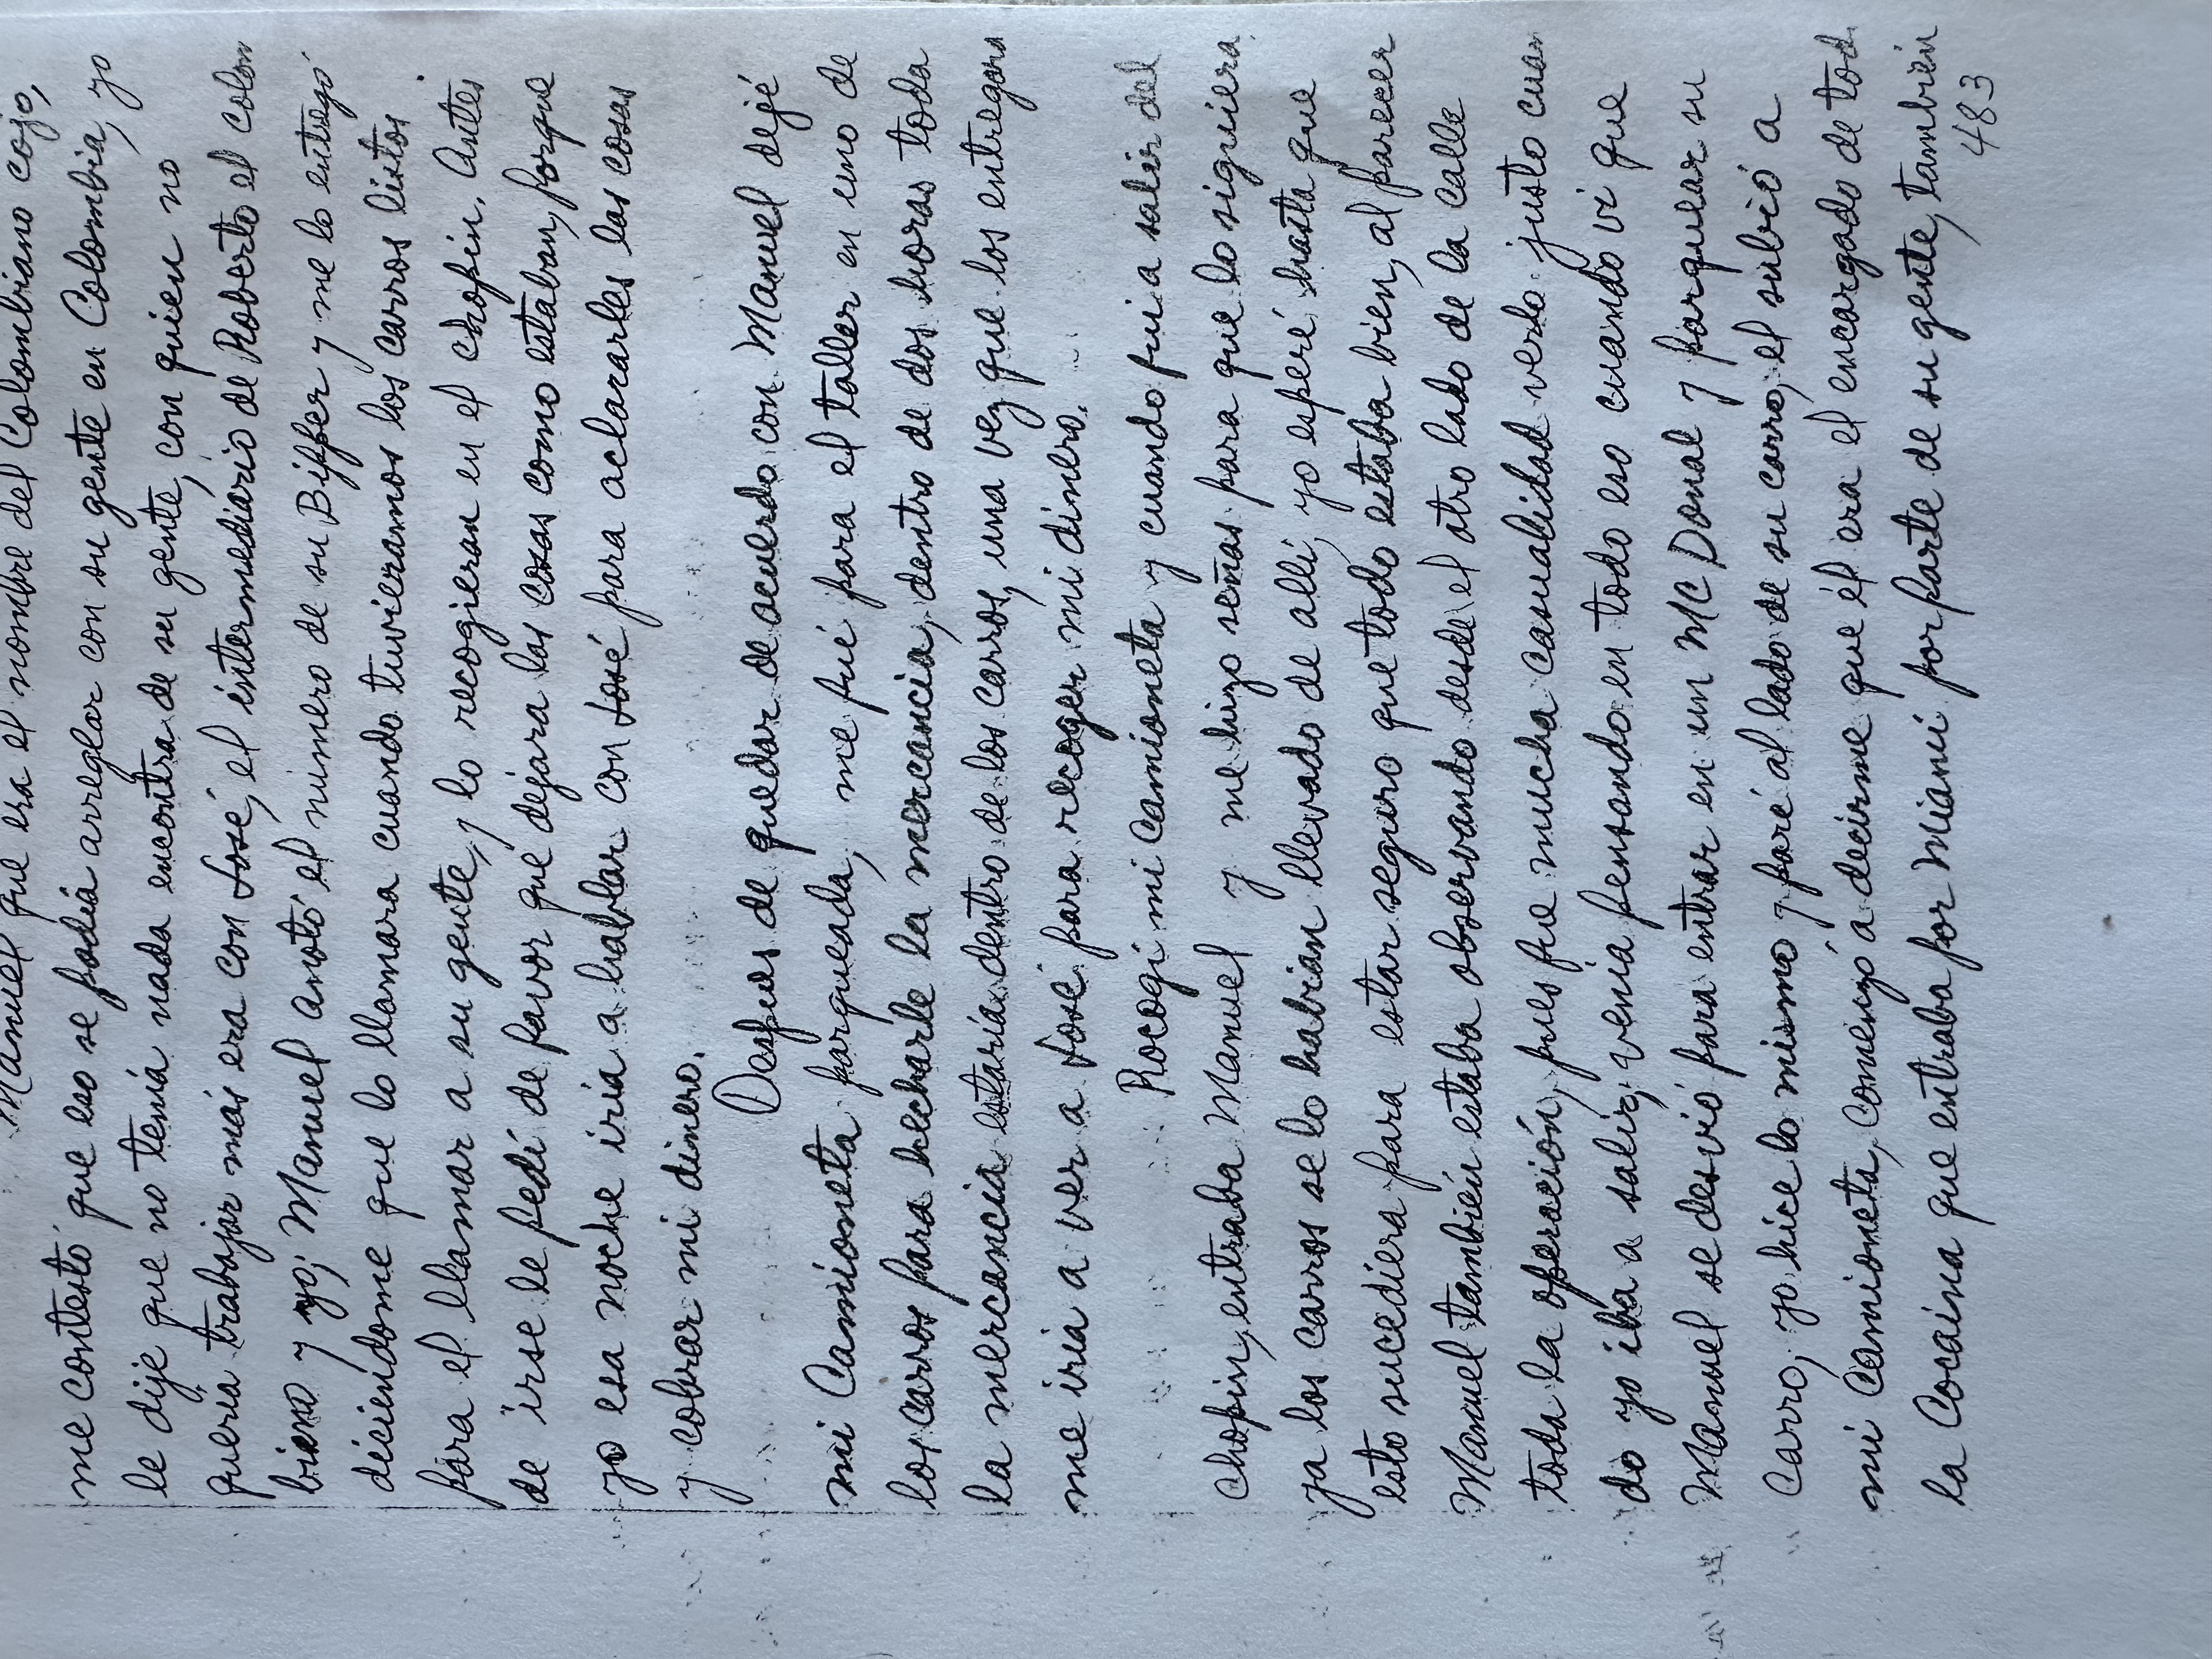 Manuel que era el nombre del Colombiano cojo,
me contestó que eso se podía arreglar con su gente en Colombia, yo
le dije que no tenía nada encontra de su gente, con quien no
quería trabajar más era con José, el intermediario de Roberto el colom
biano y yo; Manuel anotó el número de su Bipper y me lo entregó
diciendome que lo llamara cuando tuvieramos los carros listos
para el llamar a su gente, y lo recogieran en el chopin. Antes
de irse le pedí de favor que dejara las cosas como estaban, porque
yo esa noche iría a hablar con José para aclararles las cosas
y cobrar mi dinero.
Despues de quedar de acuerdo con Manuel dejé
mi Camioneta parqueada, me fué para el taller en uno de
los carros para hecharle la mercancia, dentro de dos horas toda
la mercancia estaría dentro de los carros, una vez que los entregara
me iría a ver a José para recoger mi dinero.
Rocogí mi camioneta y cuando fui a salir del
chopin, entraba Manuel y me hizo señas para que lo siguiera,
ya los carros se lo habian llevado de alli, yo esperé hasta que
esto sucediera para estar seguro que todo estaba bien, al parecer
Manuel también estaba observando desde el otro lado de la calle
toda la operación, pues fue mucha casualidad verlo justo cuan
do yo iba a salir, venia pensando en todo eso cuando vi que
Manuel se desvió para entrar en un MC Donal y parquear su
carro, yo hice lo mismo y paré al lado de su carro, el subió a
mi camioneta, comenzó a decirme que él era el encargado de tod
la Cocaina que entraba por Miami por parte de su gente, también
483